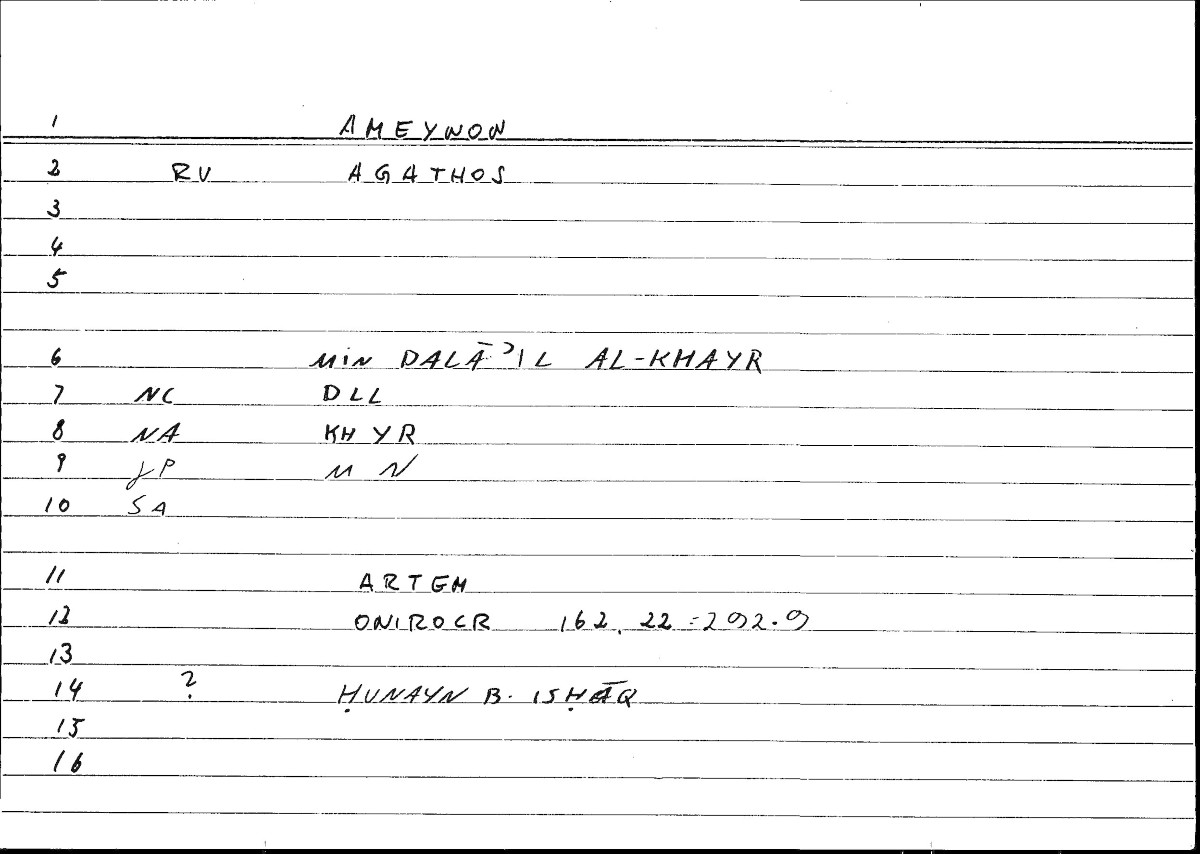 1 AMEYNON
2 RV AGATHOS
3
4
5
6 MIN DALĀʾIL AL-KHAYR
7 NC DLL
8 NA KHYR
9 JP MN
10 SA
11 ARTEM
12 ONIROCR 162.22 = 292.9
13
14 ? ḤUNAYN B. ISḤĀQ
15
16